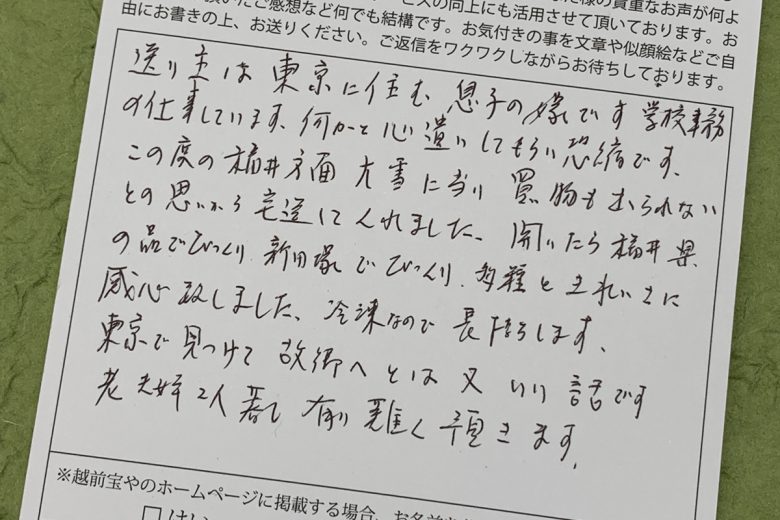 頂いたご感想など何でも結構です。お気付きの事を文章や似顔絵などご自
由にお書きの上、お送りください。ご返信をワクワクしながらお待ちしております。
送り主は東京に住む、息子の嫁です 学校事務
の仕事しています、何かと心遣いしてもらい恐縮です、
この度の福井方面大雪に当り 買物も出られない
との思いから宅送してくれました、開いたら福井県
の品でびっくり、新田塚でびっくり、多種ときれいさに
感心致しました、冷凍なので長持ちします、
東京で見つけて故郷へとは又いい話です
老夫婦2人暮し有り難く頂きます、
※越前宝やのホームページに掲載する場合、お名前を
□はい